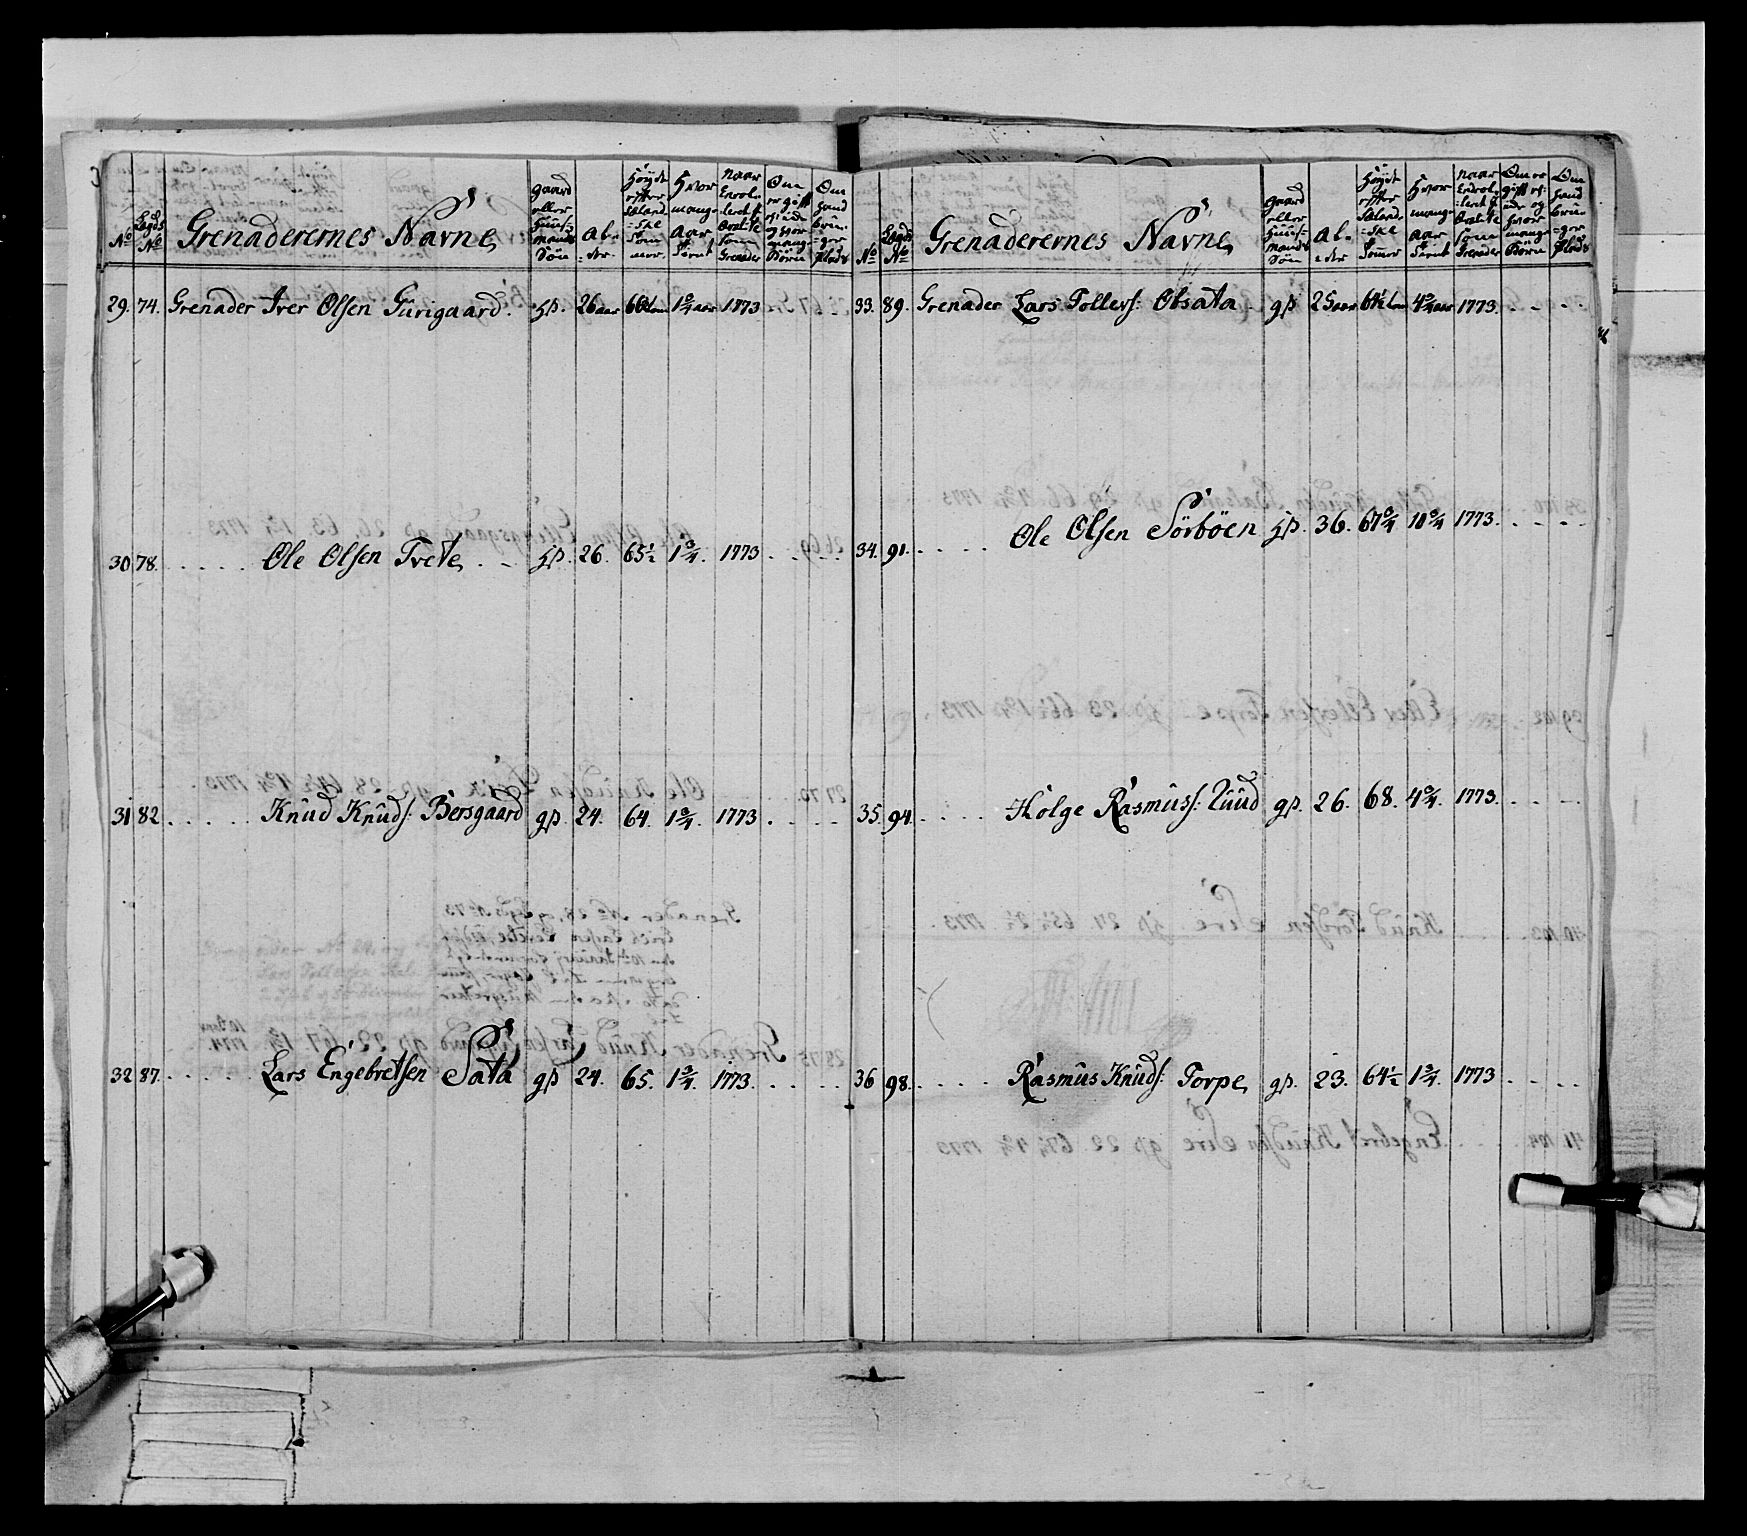 No
Lægds No
Grenaderernes Navne
gaard eller Huusmands Søn
Alder
Høyde efter Siælandske Tommer
Hvor mange Aar tient
Naar Enrolleret som Grenader
Om er gift og hvor mange Børn
29. 74. Grenader Iver Olsen Gurigaard. HS. 26 aar 1 3/4 aar 1773
30 78. . . . . . Ole Olsen Trete . - HS. 26. 65 1/2 1 3/4. 1773 . . . .
31 82. . . . . Knud Knuds: Bersgaard gS. 24. 64. 1 3/4. 1773 . . . .
32 87. . . . . Lars Engebretsen Sata gS 24. 65. 1 3/4. 1773. . . . .
No
Lægds No
Grenaderernes Navne
gaard eller Huusmands Søn
Alder
Høyde efter Siælandske Tommer
Hvor mange Aar tient
Naar Enrolleret som Grenader
Om er gift og hvor mange Børn
33. 89. Grenader Lars Tollevs: Olsata gS 25 aar 1773. - - - -
34. 91. . . . . Ole Olsen Sörböen HS. 36. 67 3/4 10 3/4 1773. . . . .
35. 94. . . . . Holge Rasmuss: Ruud gS. 26. 68. 4 3/4. 1773. . . . .
36 98. . . . . Rasmus Knuds: Torpe gS. 23. 64 1/2 1 3/4. 1773 . . . .